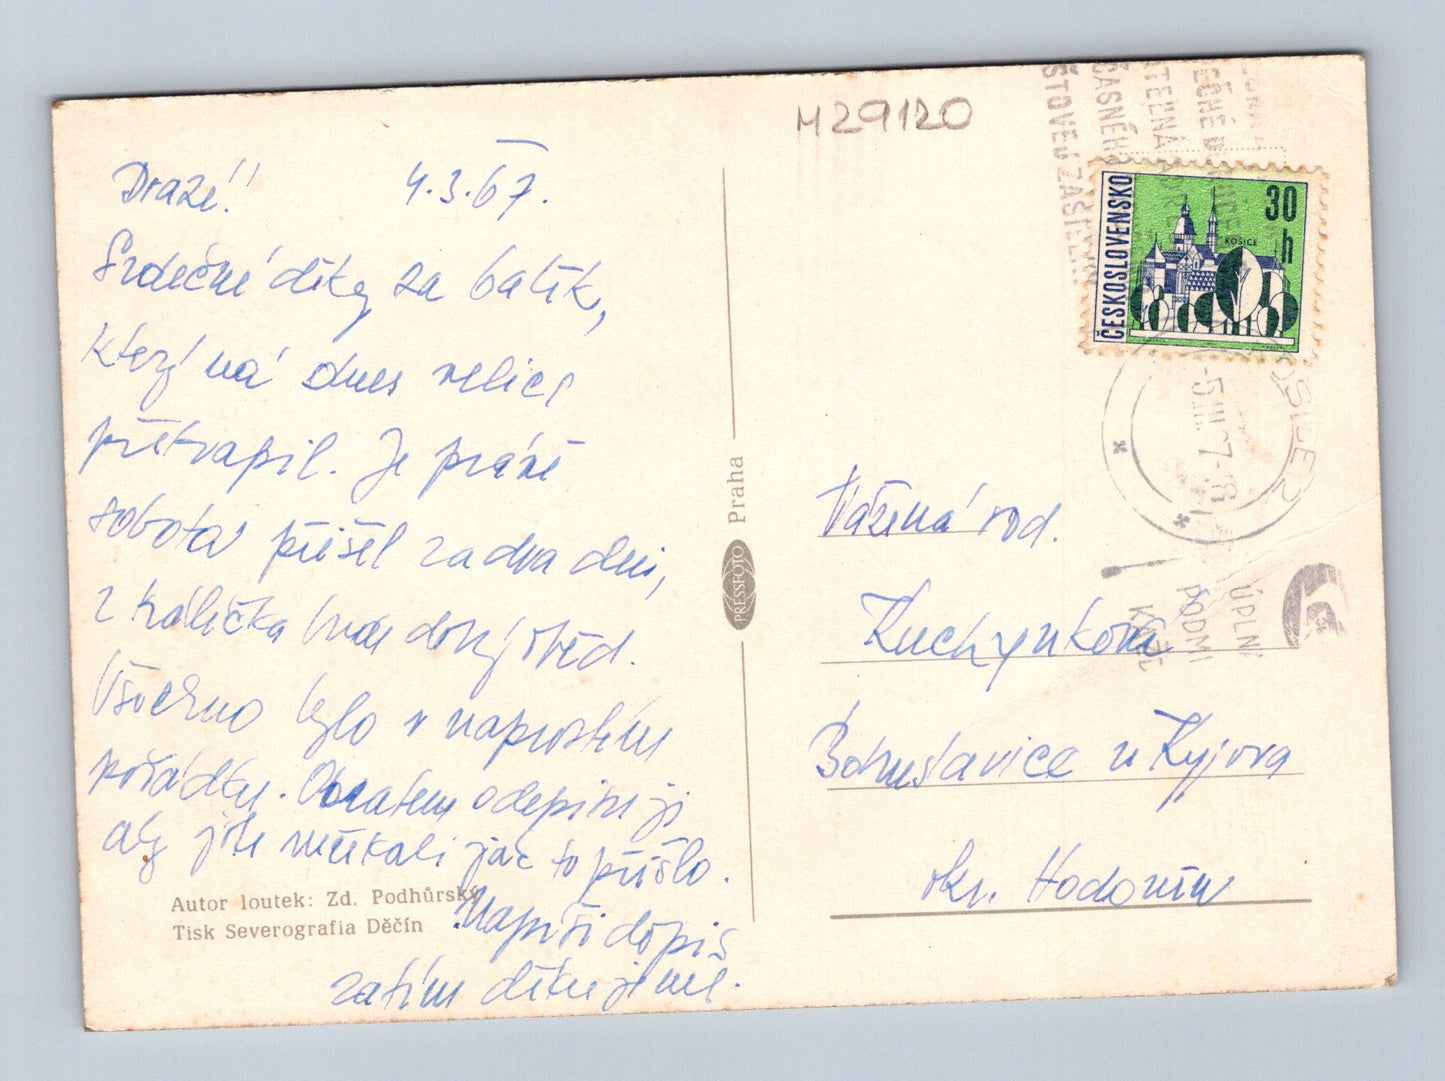 M29120
Drazí!! 4.3.67.
Srdečné díky za balík,
který ná dnes velice
překvapil. Je právě
sobota přišel za dva dni,
z králíčka bude dobrý oběd.
Všechno bylo v naprostém
pořádku. Obratem odepisuji
aby jste nečekali jak to přišlo.
Napíši dopis
zatím děkujeme.
Autor loutek: Zd. Podhůrský
Tisk Severografia Děčín
PRESSFOTO Praha
ČESKOSLOVENSKO
30 h
KOŠICE
-5.III.67-18
ÚPLNÁ
PODMI
Vážená rod.
Kuchyňková
Bohuslavice u Kyjova
okr. Hodonín